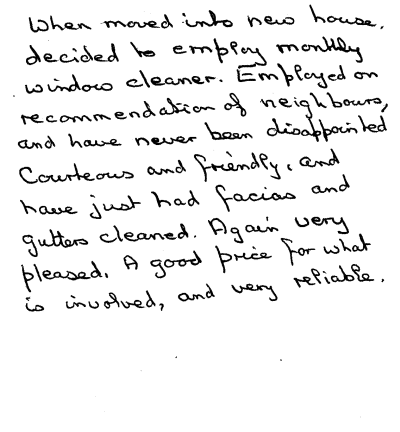 When moved into new house,
decided to employ monthly
window cleaner. Employed on
recommendation of neighbours,
and have never been disappointed
Courteous and friendly, and
have just had facias and
gutters cleaned. Again very
pleased. A good price for what
is involved, and very reliable.